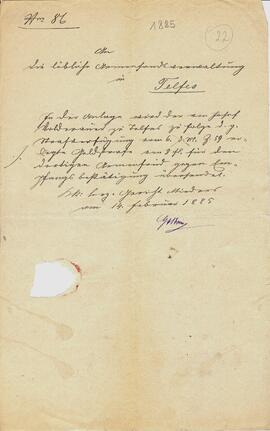 Nro 86
1885
22
An
die löbliche Armenfondsverwaltung
in
Telfes
In der Anlage wird der von Josef
zu Telfes zu folge d. g.
Strafverfügung vom 6. d. M. Z 19 er-
legte Geldstrafe von 3 fl. für den
dortigen Armenfond gegen Em-
pfangsbestätigung übersendet.
K. k. Bez. Gericht Mieders
am 14. Februar 1885